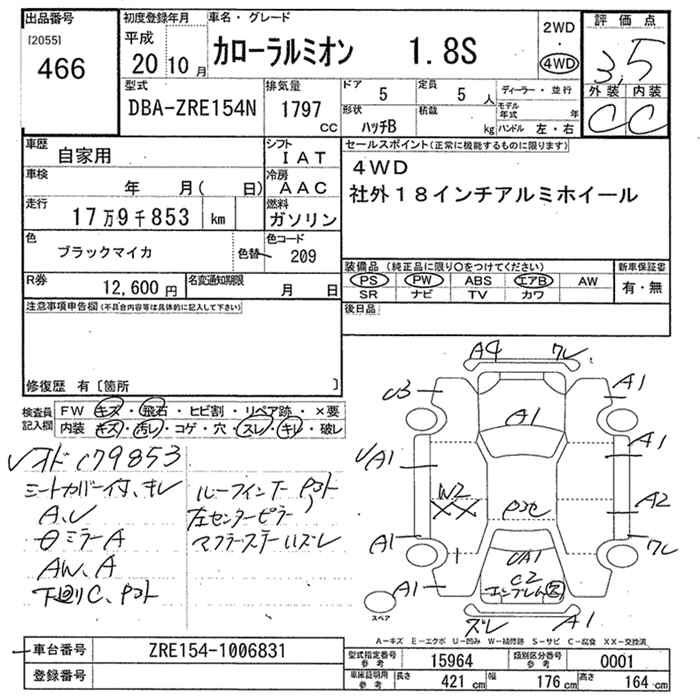 出品番号 初度登録年月 車名・グレード 評価点
[2055] 466
平成 20 10 月 カローラルミオン 1.8S 2WD ・ 4WD 3.5
型式 排気量 ドア 定員 ディーラー・並行 外装 内装
DBA-ZRE154N 1797 CC 5 5 人 モデル年式 年 C C
形状 ハッチB 積載 kg ハンドル 左・右
車歴 自家用 シフト IAT セールスポイント(正常に機能するものに限ります)
車検 年 月( 日) 冷房 AAC 4WD
走行 17万9千853 km 燃料 ガソリン 社外18インチアルミホイール
色 ブラックマイカ 色替 色コード 209
R券 12,600 円 名変通知期限 月 日
装備品(純正品に限り○をつけてください) 新車保証書
PS PW ABS エアB AW 有・無
SR ナビ TV カワ
後日品
注意事項申告欄(不具合内容等は具体的に記入して下さい)
修復歴 有〔箇所 〕
検査員記入欄 FW キズ・飛石・ヒビ割・リペア跡・×要
内装 キズ・汚レ・コゲ・穴・スレ・キレ・破レ
179853
シートカバー付、キレ
A、U
ミラーA
AW、A
下廻りC、
左センターピラー
A4 ワレ
A1
A1
A1
UA1
W2
XX
A2
A1
ワレ
UA1
C2
A1
エンブレム
ズレ A1
スペア
A-キズ E-エクボ U-凹み W-補修跡 S-サビ C-腐食 XX-交換済
車台番号 ZRE154-1006831
登録番号
型式指定番号 参考 15964 類別区分番号 参考 0001
車庫証明用 参考 長さ 421 cm 幅 176 cm 高さ 164 cm